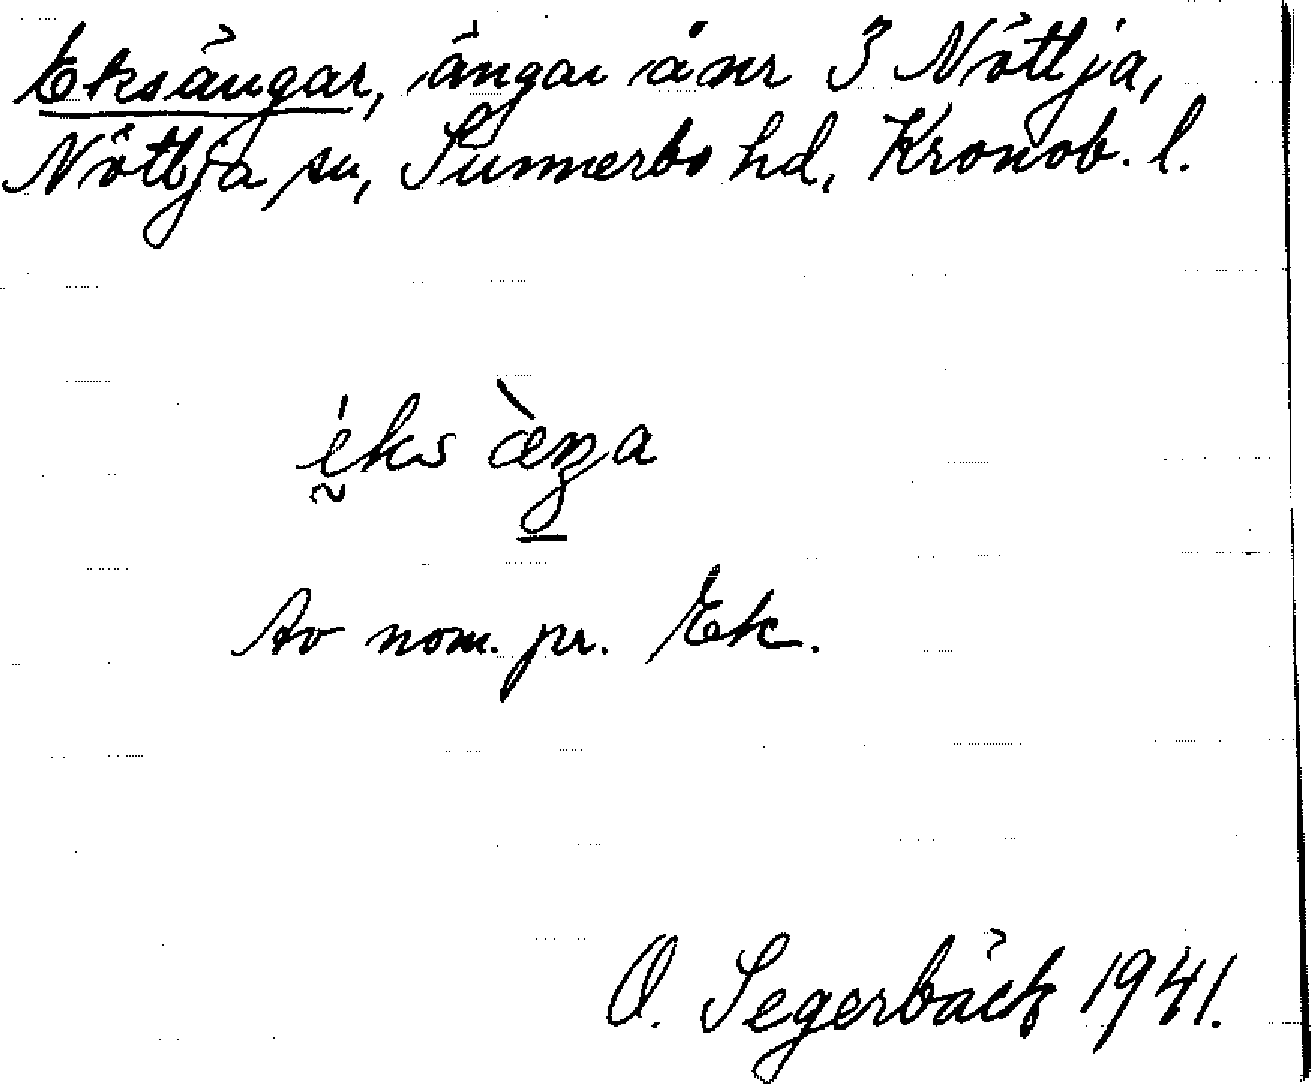 Eksängar, ängar å nr 3 Nöttja,
Nöttja sn, Sunnerbo hd, Kronob. l.
éks æ̀ŋa
Av nom. pr. Ek.
O. Segerbäck 1941.